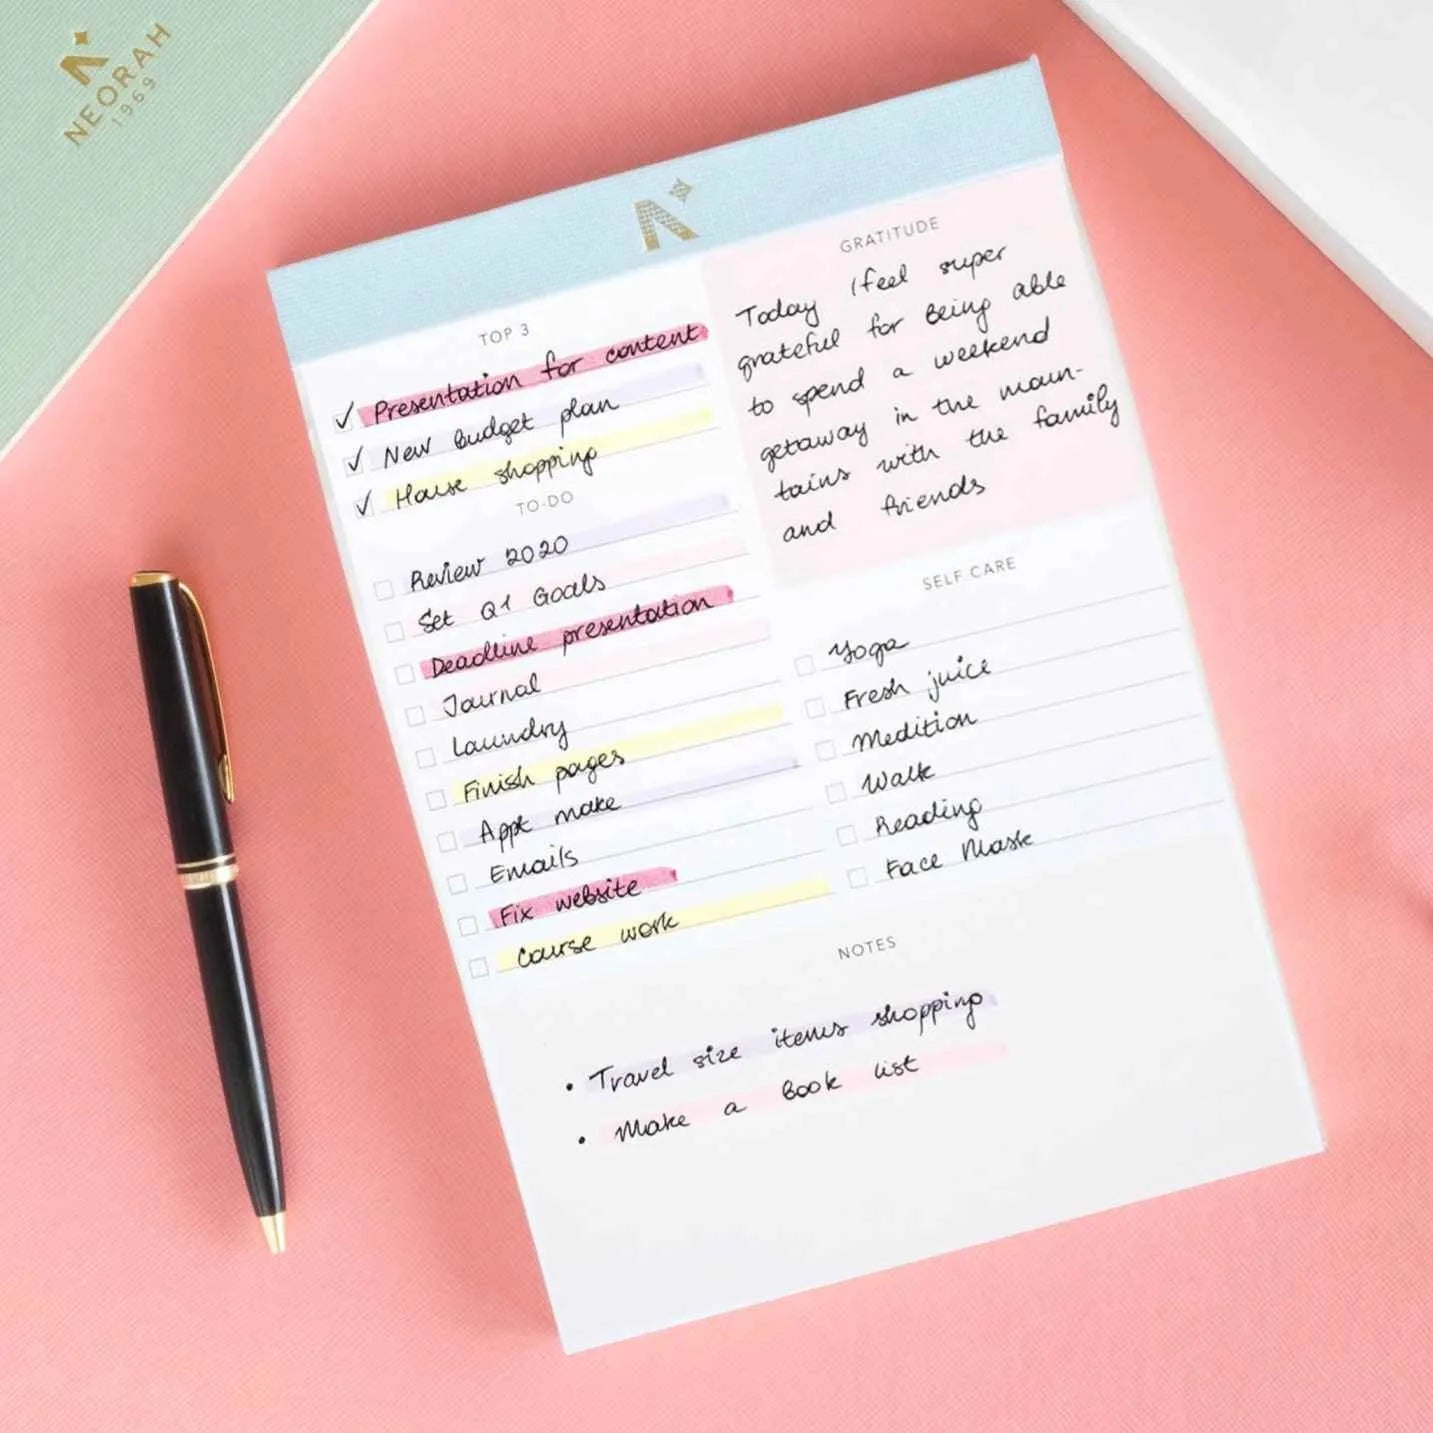 NEORAH
1969
TOP 3
✓ Presentation for content
✓ New Budget plan
✓ House shopping
TO-DO
Review 2020
Set Q1 Goals
Deadline presentation
Journal
Laundry
Finish pages
Appt make
Emails
Fix website
Course work
GRATITUDE
Today I feel super
grateful for Being able
to spend a weekend
getaway in the moun-
tains with the family
and friends
SELF CARE
Yoga
Fresh juice
Medition
Walk
Reading
Face Mask
NOTES
• Travel size items shopping
• Make a Book list